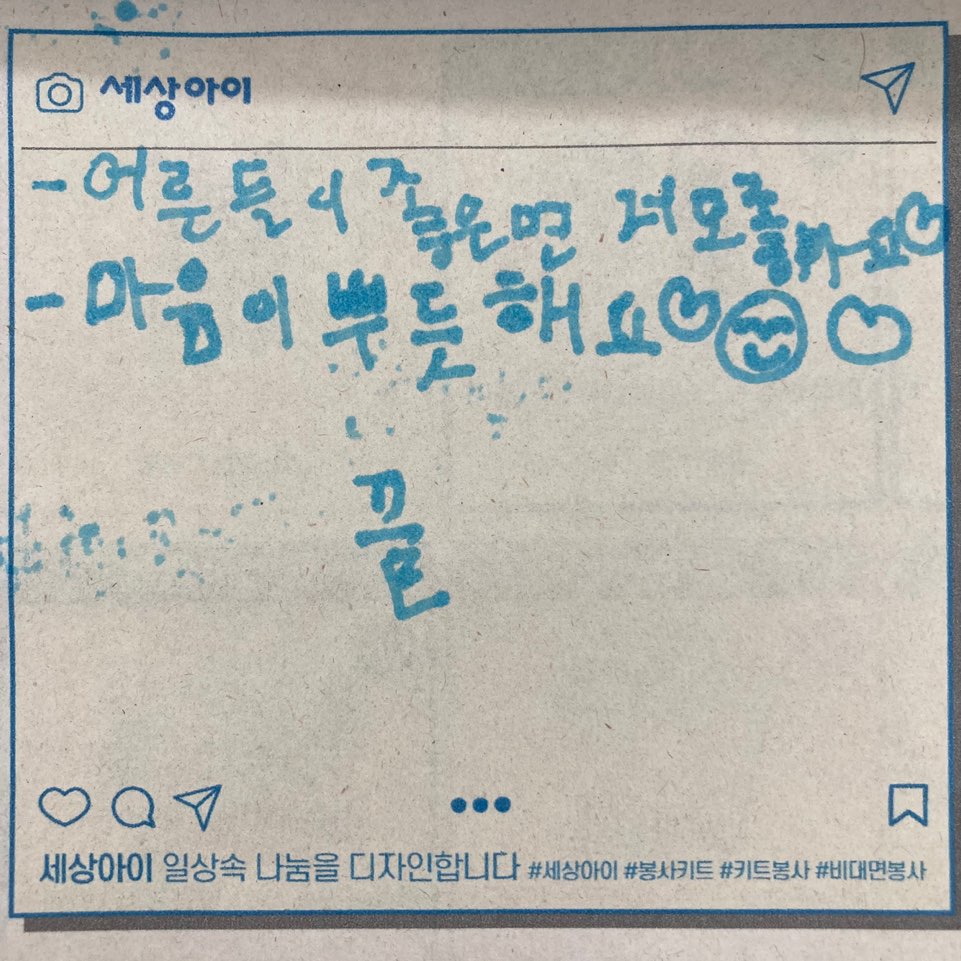 세상아이
- 어른들이 면 저도 좋아요
- 마음이 뿌듯해요
끝
세상아이 일상속 나눔을 디자인합니다 #세상아이 #봉사키트 #키트봉사 #비대면봉사